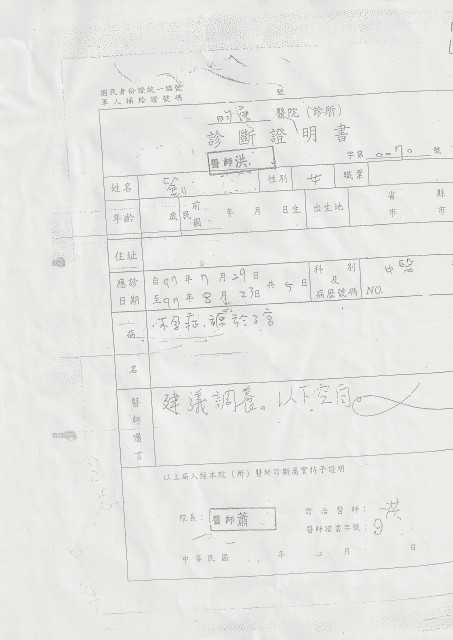 國民身份證統一編號
軍人補給證號碼
號
醫院(診所)
診斷證明書
醫師洪
字第 0070 號
姓名 劉 性別 女 職業
年齡 歲 民前國 年 月 日生 出生地 省市 縣市
住址
應診日期 自97年7月29日 至97年8月23日 共5日 科別及病歷號碼 中醫 NO.
病名 不孕症,
醫師囑言 建議調養。以下空白。
以上病人經本院(所)醫師診斷屬實特予證明
院長: 醫師蕭
診治醫師: 洪
醫師證書字號:
中華民國 年 月 日